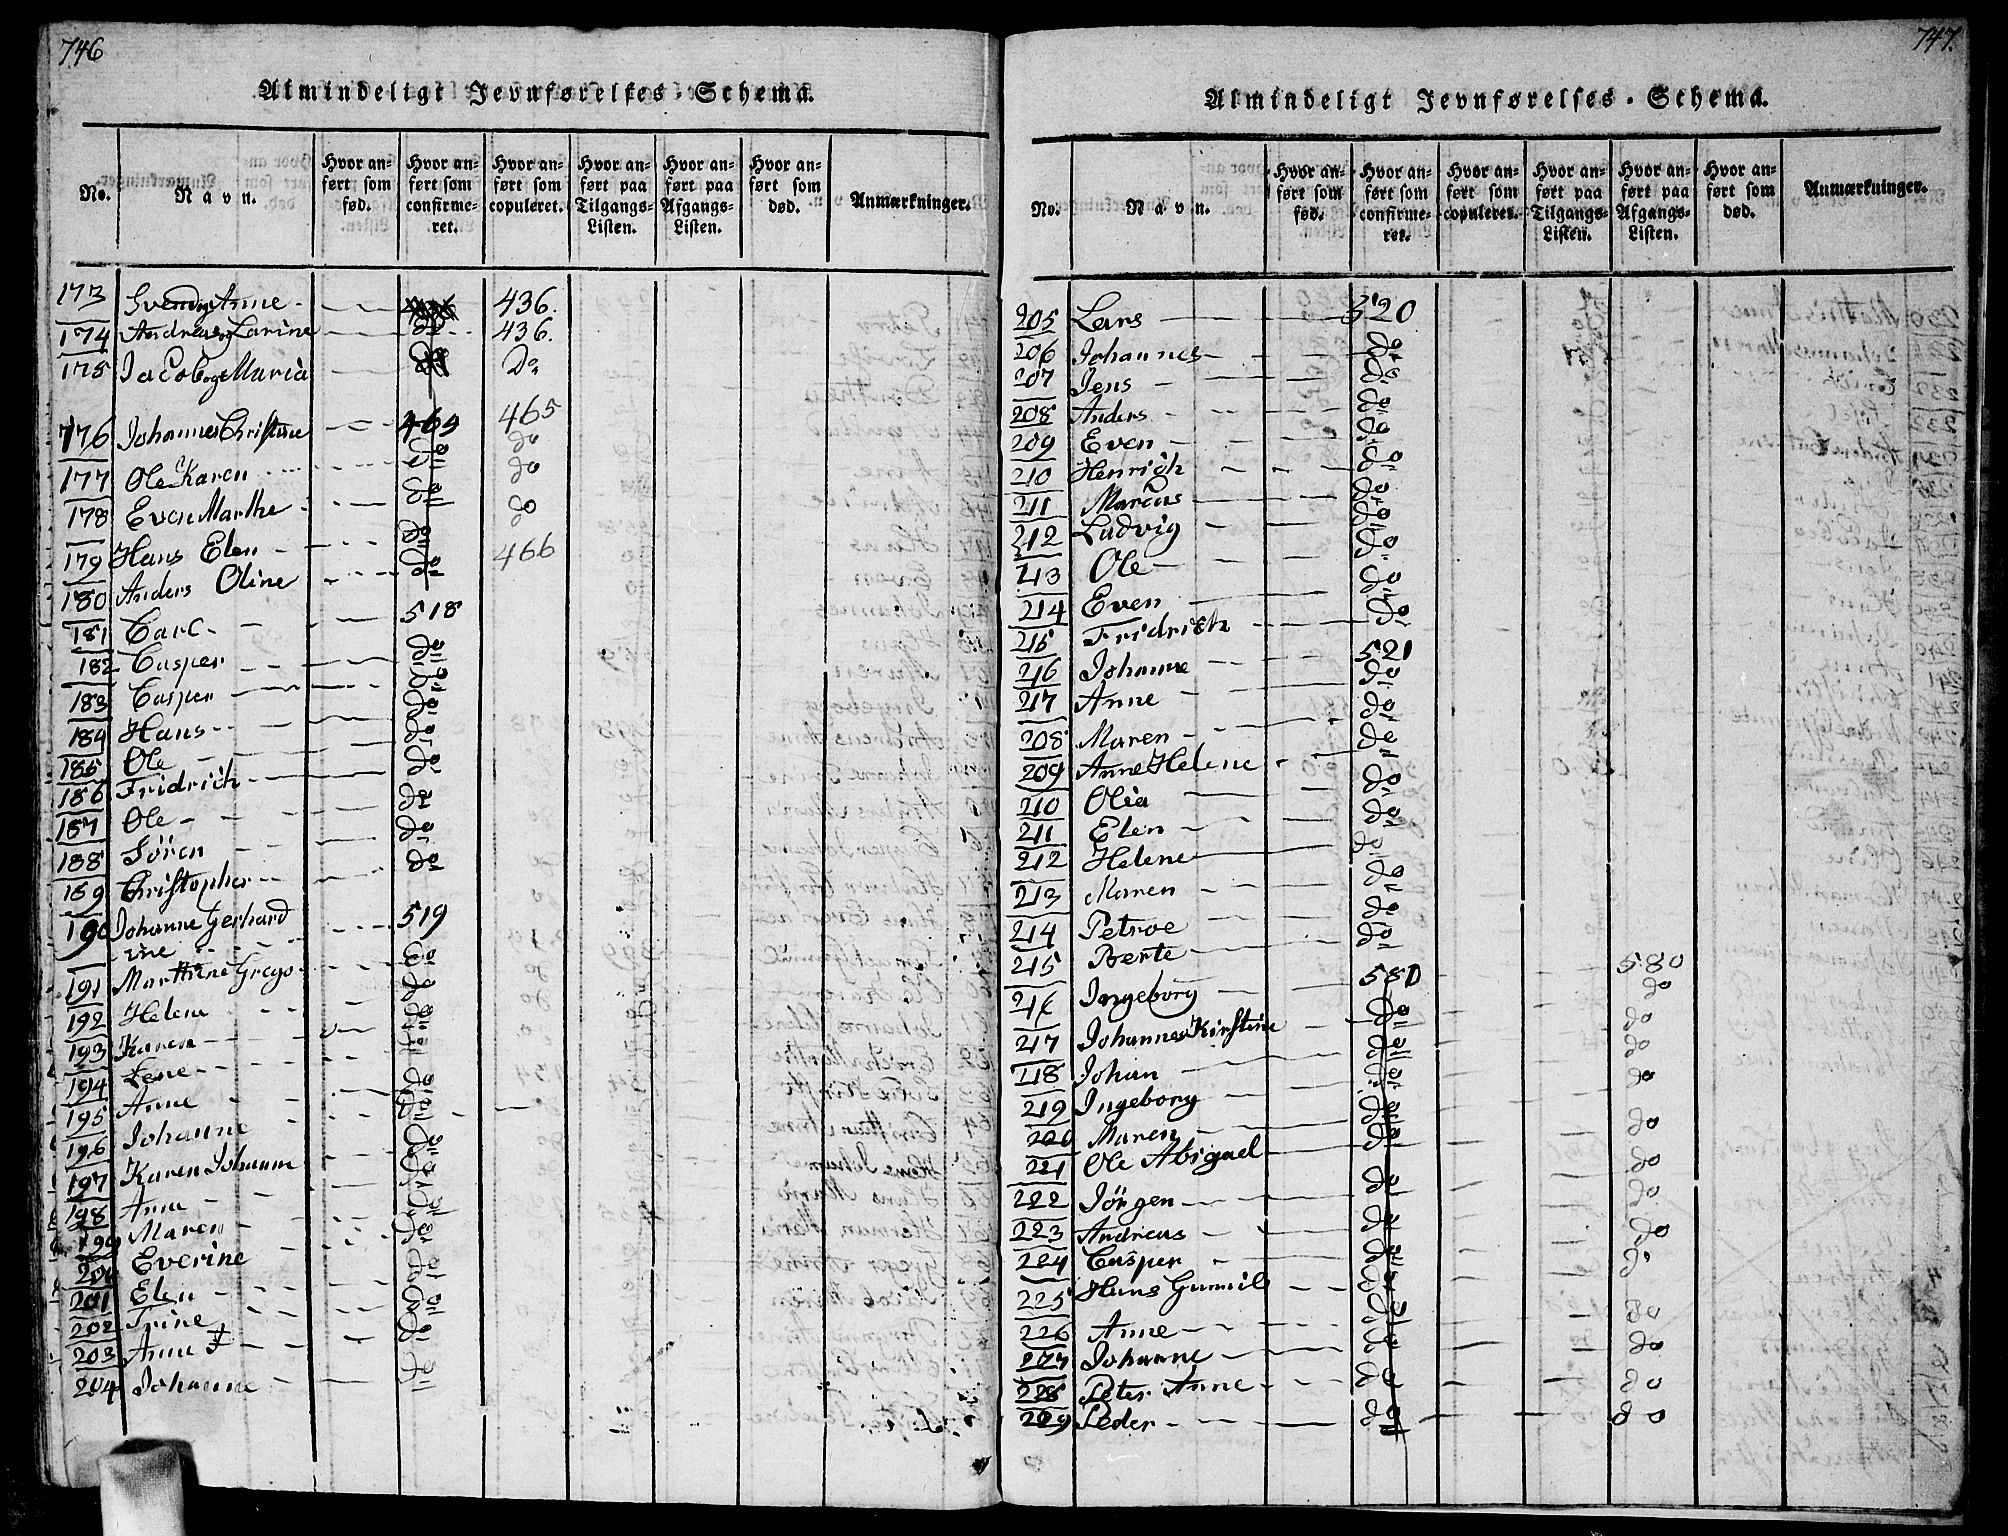 746
Almindeligt Jevnførelses-Schema.
No. Navn. Hvor anført som fød. Hvor anført som confirmeret. Hvor anført som copuleret. Hvor anført paa Tilgangs-Listen. Hvor anført paa Afgangs-Listen. Hvor anført som død. Anmærkninger.
173 Svend og Anne 436
174 Andreas og Larine 436.
175 Jacob og Maria Do
176 Johannes Christine 465
177 Ole Karen do
178 Even Marthe do
179 Hans Elen do
180 Anders Oline 466
181 Carl 518
182 Casper do
183 Casper do
184 Hans do
185 Ole do
186 Fridrich do
187 Ole do
188 Søren do
189 Christopher do
190 Johanne Gerhard
ine 519
191 Marthine Grego do
192 Helene do
193 Karen do
194 Lene do
195 Anne do
196 Johanne do
197 Karen Johanne do
198 Anne do
199 Maren do
200 Everine do
201 Elen do
202 Trine do
203 Anne do
204 Johanne do
747.
Almindeligt Jevnførelses-Schema.
No. Navn. Hvor anført som fød. Hvor anført som confirmeret. Hvor anført som copuleret. Hvor anført paa Tilgangs-Listen. Hvor anført paa Afgangs-Listen. Hvor anført som død. Anmærkninger.
205 Lars 520
206 Johannes do
207 Jens do
208 Anders do
209 Even do
210 Henrich do
211 Marcus do
212 Ludvig do
213 Ole do
214 Even do
215 Fridrich do
216 Johanne 521
217 Anne do
208 Maren do
209 Anne Helene do
210 Olia do
211 Elen do
212 Helene do
213 Maren do
214 Petroe do
215 Berte do
216 Ingeborg 580 580
217 Johannes Kirstine do do
218 Johan do do
219 Ingeborg do do
220 Maren do do
221 Ole Abigael do do
222 Jörgen do do
223 Andreas do do
224 Casper do do
225 Hans Gunnil do do
226 Anne do do
227 Johanne do do
228 Peter Anne do do
229 Peder do do